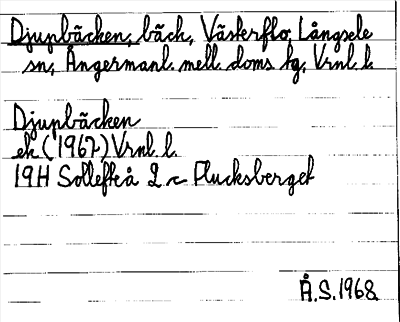 Djupbäcken, bäck, Västerflo, Långsele
sn, Ångermanl. mell. doms hg, Vrnl. l.
Djupbäcken
ek (1967) Vrnl. l.
19H Sollefteå 2 c Flucksberget
Å.S. 1968.